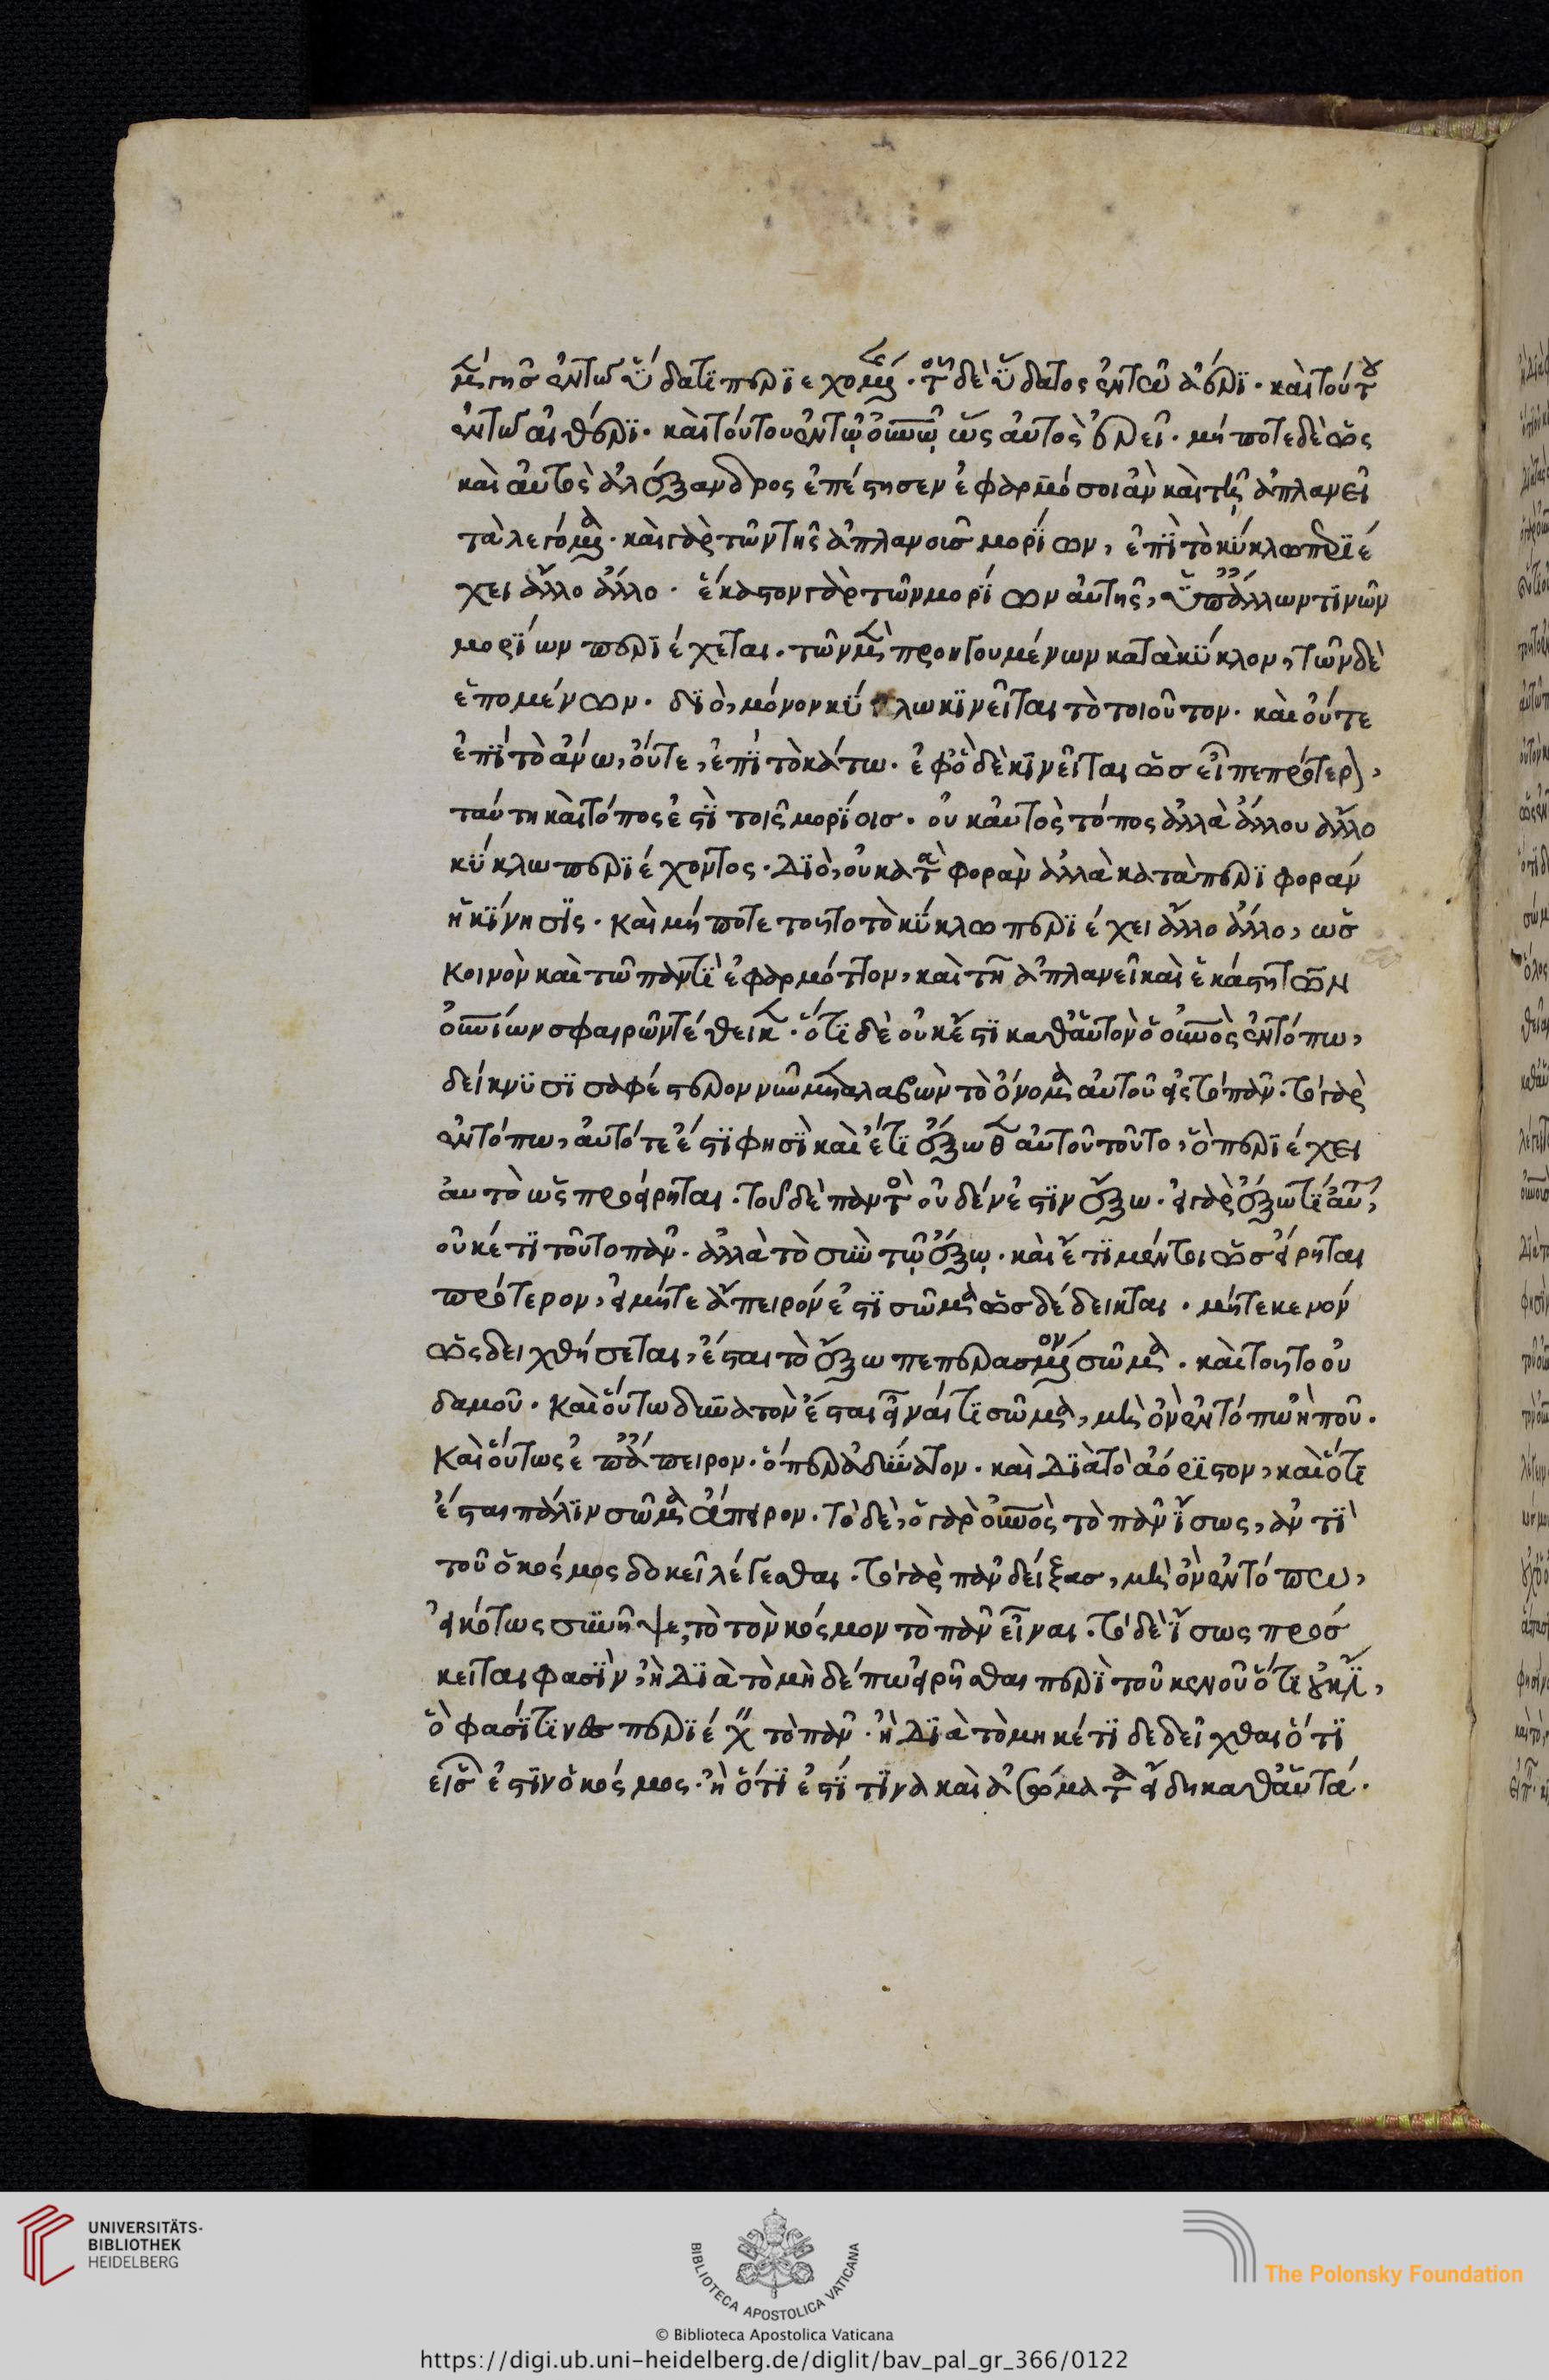 μὲν γῆς ἐν τῶ ὕδατι περιεχομένης. τοῦ δὲ ὕδατος ἐν τῶ ἀέρι. καὶ τούτου
ἐν τῶ αἰθέρι. καὶ τούτου ἐν τῷ οὐνῷ ὡς αὐτὸς ἐρεῖ. μήποτε δὲ ὡς
καὶ αὐτὸς ἀλέξανδρος ἐπέστησεν ἐφαρμόσοι ἂν καὶ τῆ ἀπλανεῖ
τὰ λεγόμενα. καὶ γὰρ τῶν τῆς ἀπλανοῦς μορίων, ἐπὶ τὸ κύκλω περιέ
χει ἄλλο ἄλλο. ἕκαστον γὰρ τῶν μορίων αὐτῆς, ὑπ' ἄλλων τινῶν
μορίων περιέχεται. τῶν μὲν προηγουμένων κατὰ κύκλον, τῶν δὲ
ἑπομένων. διὸ, μόνον κύκλω κινεῖται τὸ τοιοῦτον. καὶ οὔτε
ἐπὶ τὸ ἄνω, οὔτε, ἐπὶ τὸ κάτω. ἐφ' ὃ δὲ κινεῖται ὡς εἶπε πρότερον,
ταύτη καὶ τόπος ἐστὶ τοῖς μορίοις. οὐκ αὐτὸς τόπος ἀλλὰ ἄλλου ἄλλο
κύκλω περιέχοντος. Διὸ, οὐ κατὰ φορὰν ἀλλὰ κατὰ περιφορὰν
ἡ κίνησις. καὶ μήποτε τοῦτο τὸ κύκλω περιέχει ἄλλο ἄλλο, ὡς
κοινὸν καὶ τῶ παντὶ ἐφαρμόττον, καὶ τῆ ἀπλανεῖ καὶ ἑκάστη τῶν
οὐνίων σφαιρῶν τέθεικεν. ὅτι δὲ οὐκ ἔστι καθ' αὑτὸν ὁ οὐνὸς ἐν τόπω,
δείκνυσι σαφέστερον νῦν μεταλαβὼν τὸ ὄνομα αὐτοῦ εἰς τὸ πᾶν. τὸ γὰρ
ἐν τόπω, αὐτό τε ἐστί φησι καὶ ἔτι ἔξωθεν αὐτοῦ τοῦτο, ὃ περιέχει
αὐτὸ ὡς προείρηται. τοῦ δὲ παντὸς οὐδέν ἐστιν ἔξω. εἰ γὰρ ἔξω τι αὐτοῦ,
οὐκέτι τοῦτο πᾶν. ἀλλὰ τὸ σὺν τῷ ἔξω. καὶ ἔτι μέντοι ὡς εἴρηται
πρότερον, εἰ μήτε ἄπειρόν ἐστι σῶμα ὡς δέδεικται. μήτε κενόν
ὡς δειχθήσεται, ἔσται τὸ ἔξω πεπερασμένον σῶμα. καὶ τοῦτο οὐ
δαμοῦ. καὶ οὕτω δυνατὸν ἔσται εἶναί τι σῶμα, μὴ ὂν ἐν τόπω ἤ που.
καὶ οὕτως ἐπ' ἄπειρον. ὅπερ ἀδύνατον. καὶ διὰ τὸ ἀόριστον, καὶ ὅτι
ἔσται πάλιν σῶμα ἄπειρον. τὸ δὲ, ὁ γὰρ οὐνὸς τὸ πᾶν ἴσως, ἀντὶ
τοῦ ὁ κόσμος δοκεῖ λέγεσθαι. τὸ γὰρ πᾶν δείξας, μὴ ὂν ἐν τόπω,
εἰκότως συνῆψε, τὸ τὸν κόσμον τὸ πᾶν εἶναι. τὸ δὲ ἴσως πρόσ
κειται φασὶν, ἢ διὰ τὸ μὴ δέπω εἰρῆσθαι περὶ τοῦ κενοῦ ὅτι οὐκ ἔστι,
ὅ φασί τινες περιέχειν τὸ πᾶν. ἢ διὰ τὸ μηκέτι δεδεῖχθαι ὅτι
εἷς ἐστὶν ὁ κόσμος. ἢ ὅτι ἐστί τινα καὶ ἀσώματα εἴδη καθ' αὑτά.
UNIVERSITÄTS-
BIBLIOTHEK
HEIDELBERG
BIBLIOTECA APOSTOLICA VATICANA
© Biblioteca Apostolica Vaticana
The Polonsky Foundation
https://digi.ub.uni-heidelberg.de/diglit/bav_pal_gr_366/0122